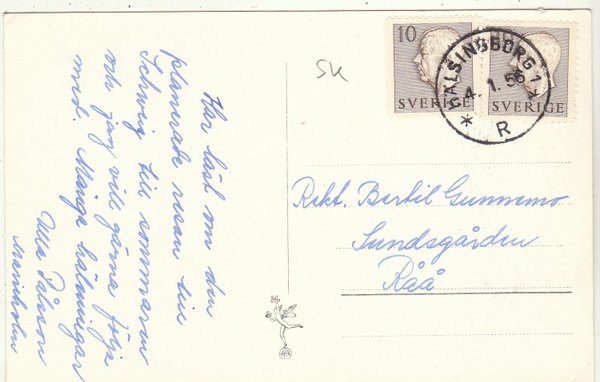 Har läst om den
planerade resan till
Schweiz till sommaren
och jag vill gärna följa
med. Många hälsningar
Ulla Pålsson
SK
10
SVERIGE
SVERIGE
HÄLSINGBORG 1
4.1.56
R
Rekt. Bertil Gunnemo
Sundsgården
Råå